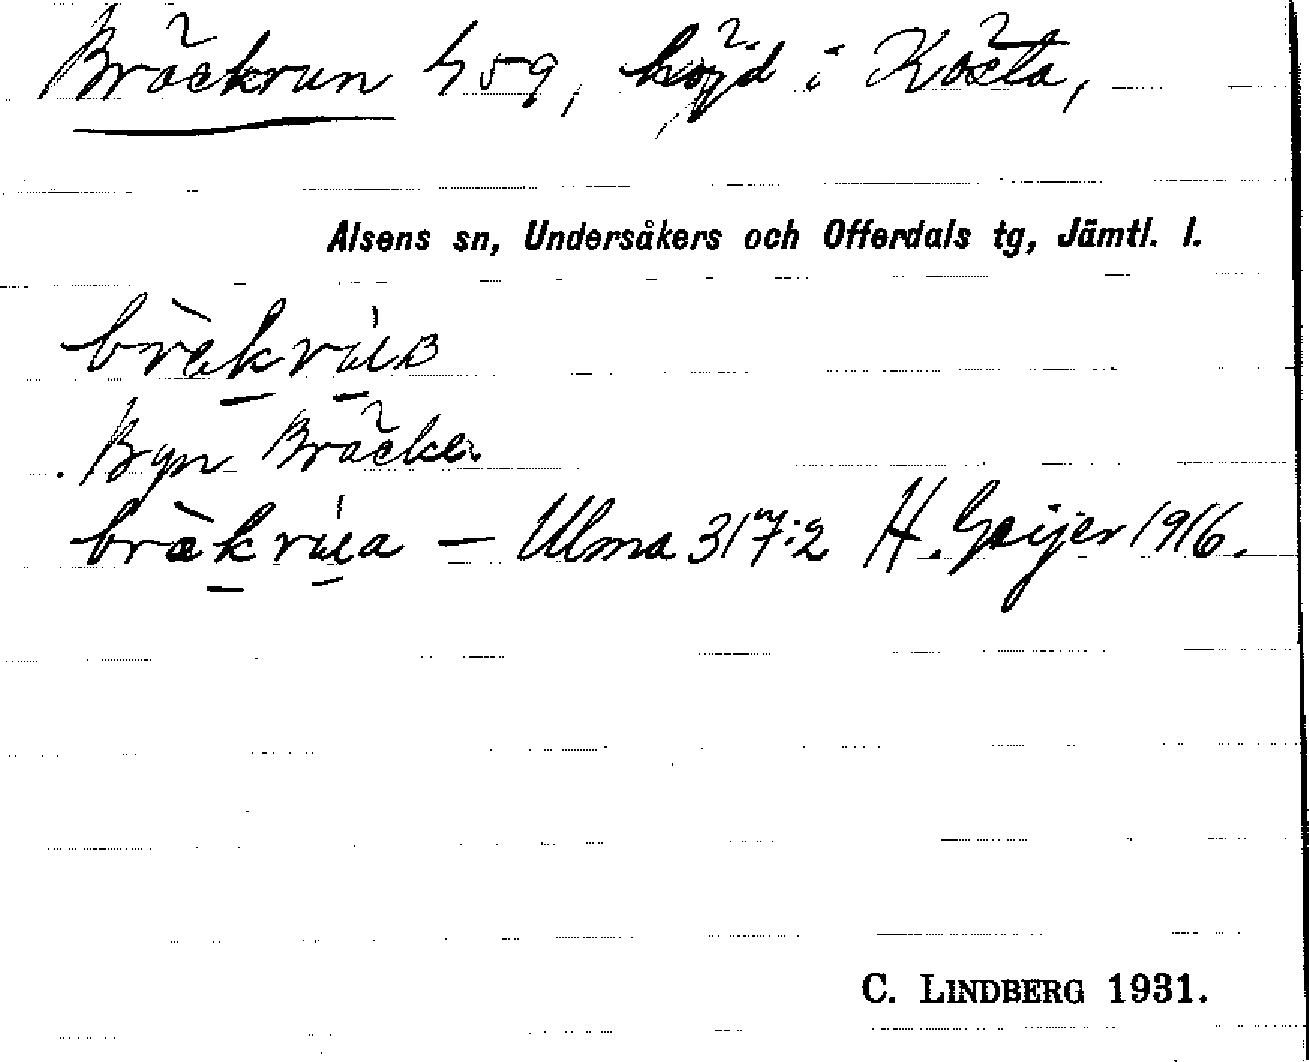 Bräckrun 459, höjd i Kösta,
Alsens sn, Undersåkers och Offerdals tg, Jämtl. l.
Byn Bräcke.
— Ulma 317:2 H. Geijer 1916.
C. LINDBERG 1931.